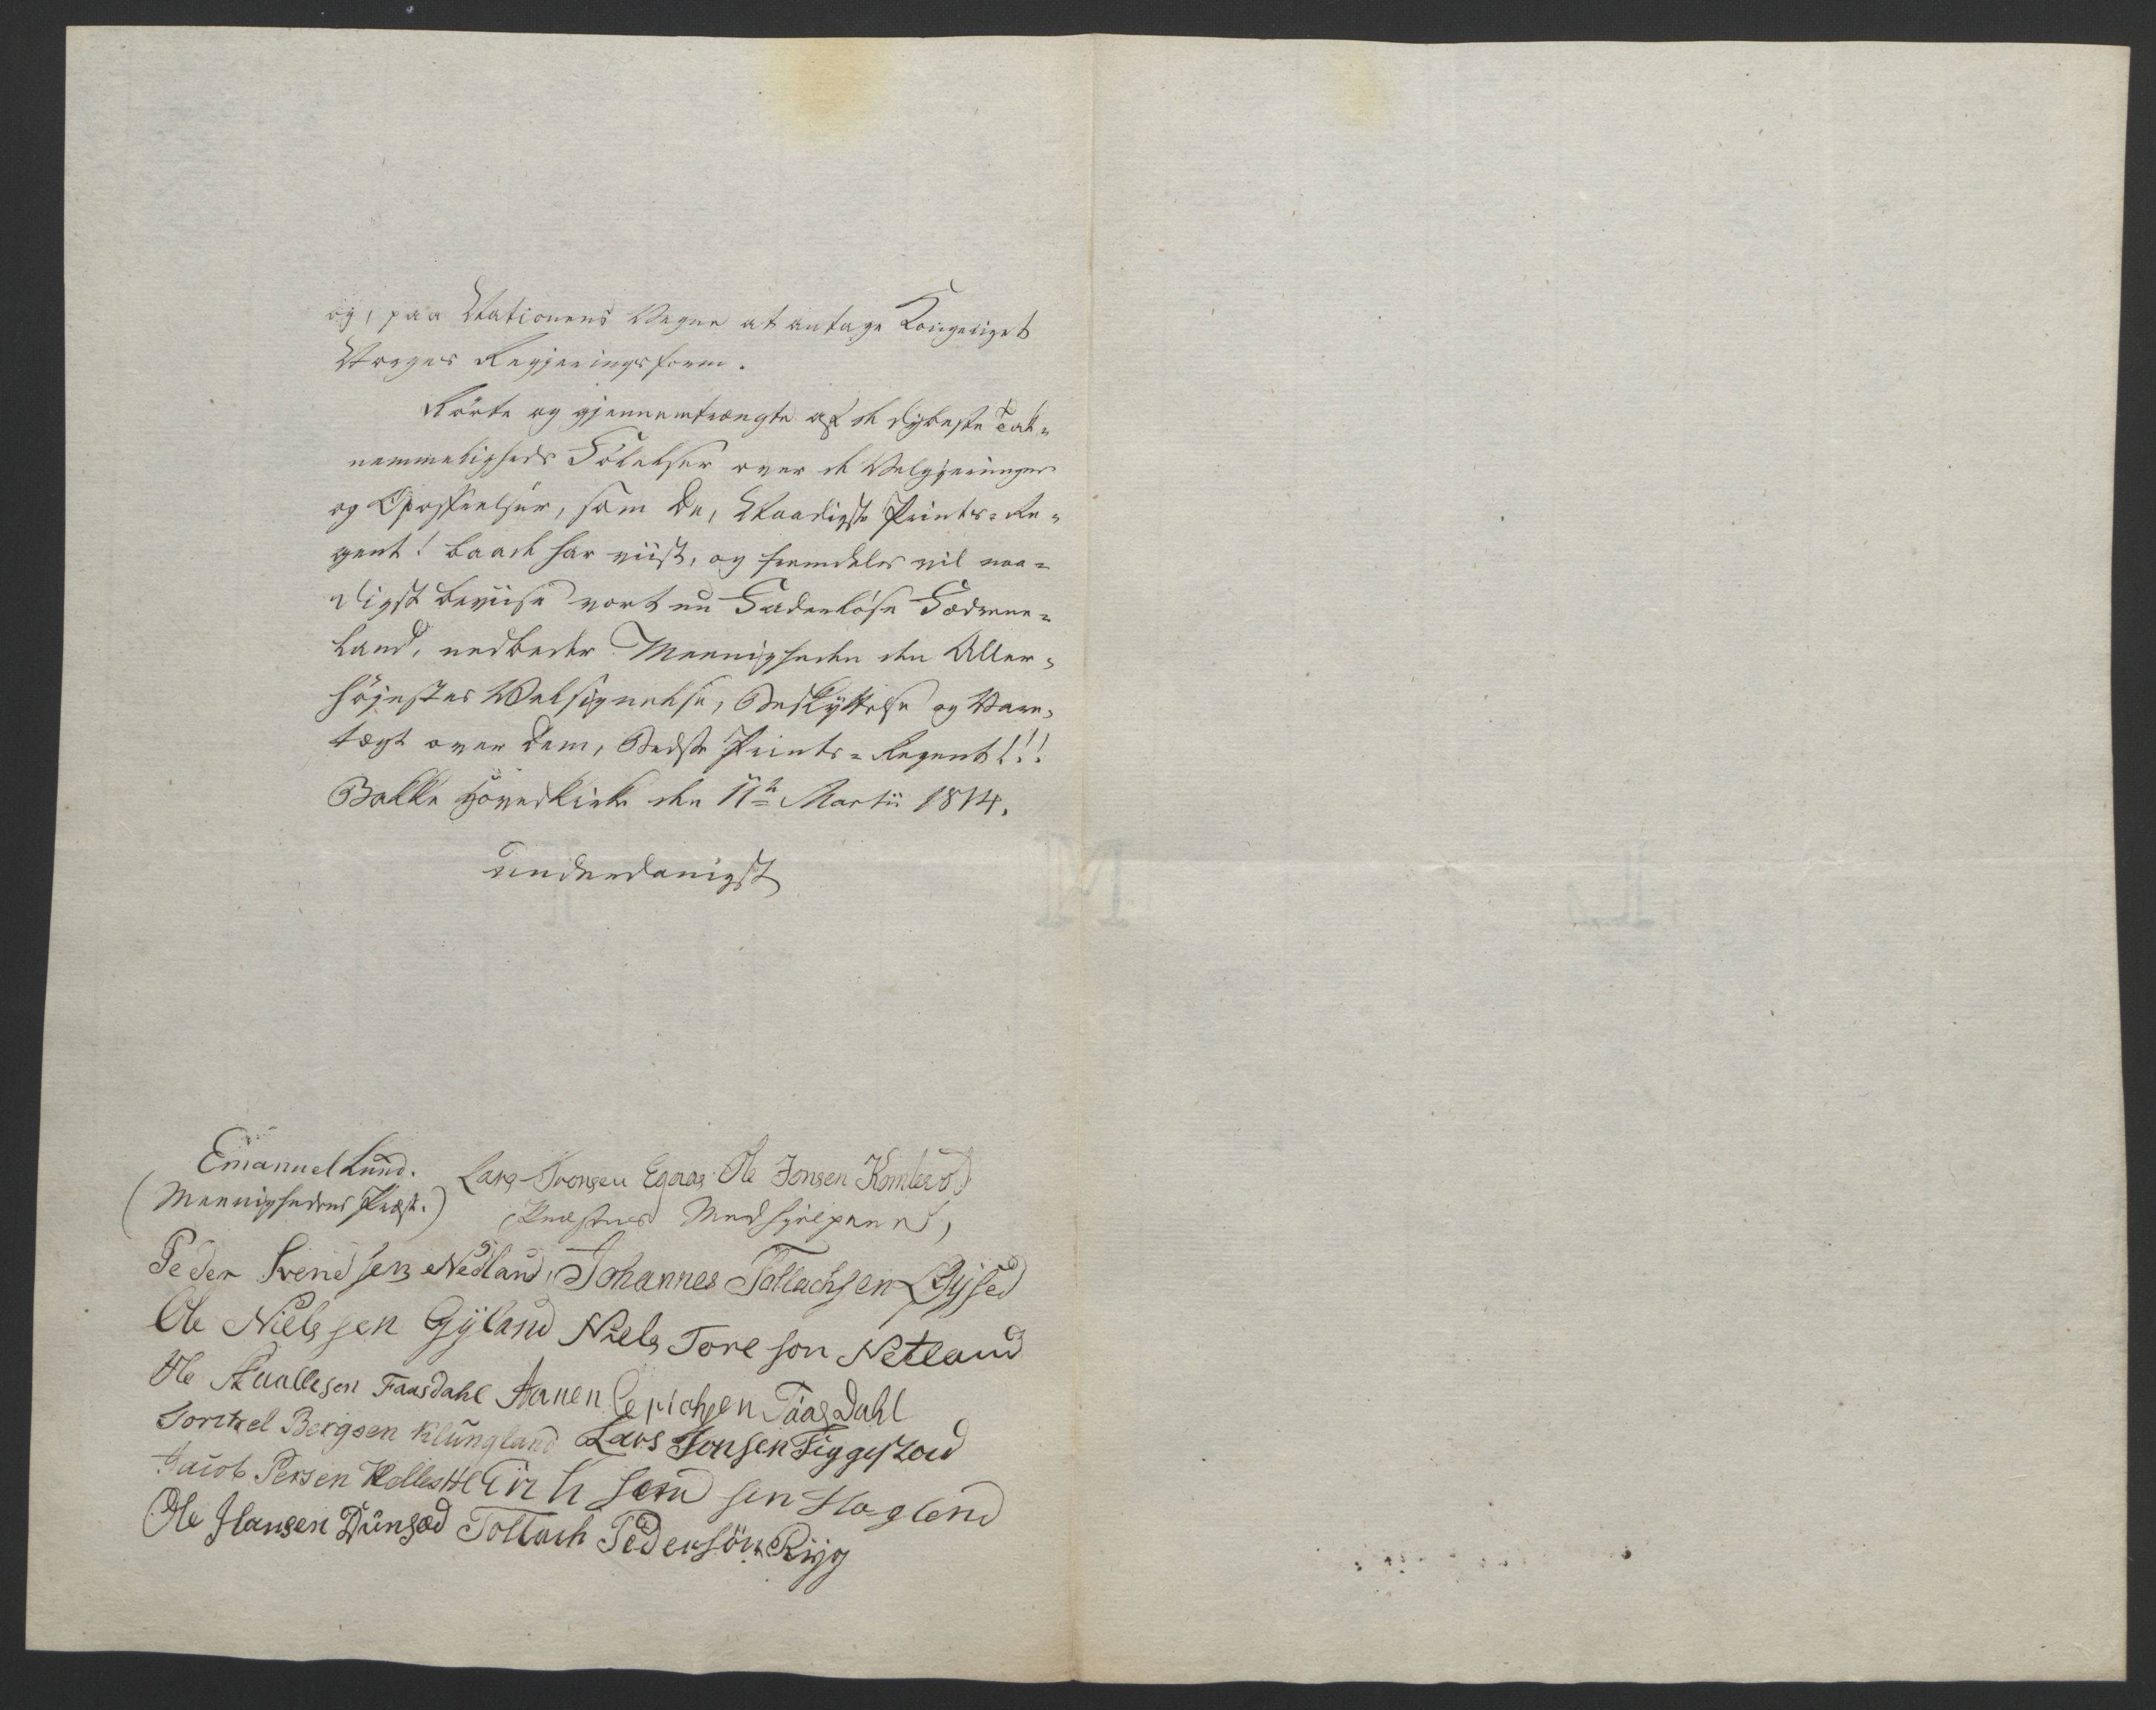 og, paa Nationens Vegne at antage Kongeriget
Norges Regjeringsform.
Rörte og gjennemtrængte af de dybeste Tak=
nemmeligheds Fölelser over de Velgjerninger
og Opoffrelser, som De, Naadigste Prints=Re=
gent! baade har viist, og fremdeles vil naa=
digst beviise vort nu Faderlöse Födrene=
land, nedbeder Meenigheden den Aller=
höjestes Velsignelse, Beskyttelse og Vare=
tægt over Dem, Bedste Prints=Regent!!!
Bakke Hovedkirke den 11te Martii 1814.
underdanigst
Emanuel Lund. Lars Tronsen Egaas Ole Jonsen
(Meenighedens Præst.) (Præstens Medhjelpere),
Peder Svendsen Nedland, Johannes Tollachsen
Ole Nielssen Gÿland Niels Toreson Netland
Ole Aaallesen Faasdahl Aanen Erichsen Faasdahl
Torckel Bergsen Klungland Lars Jonsen Figgestad
Jacob Persen
Ole Hansen Dunsæd Tollach Pedersön Rijg